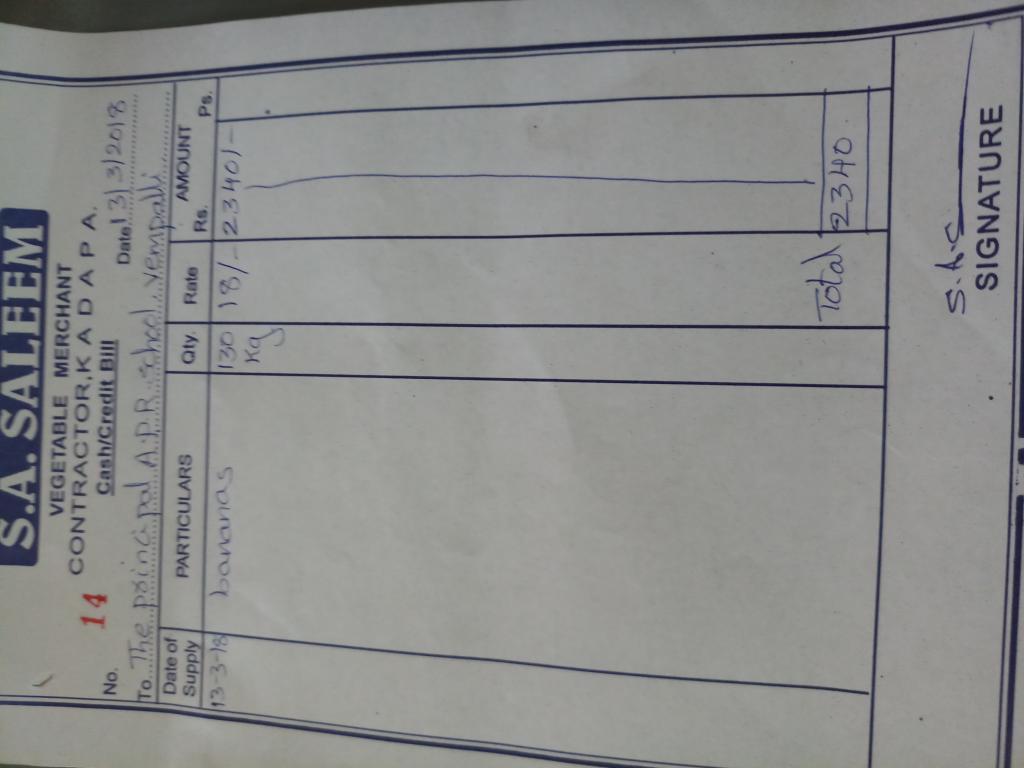 S.A. SALEEM
VEGETABLE MERCHANT
CONTRACTOR, K A D A P A.
No. 14 Cash/Credit Bill Date 13/3/2018
To The principal A.P.R. School, Vempalli
Date of Supply PARTICULARS Qty. Rate AMOUNT Rs. Ps.
13-3-18 bananas 130 18/- 2340/-
Kg
Total 2340
S.A.S
SIGNATURE